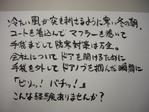 冷たい風が突き刺さるように寒い冬の朝、
コートを着込んで マフラーを巻いて
手袋まどして防寒対策は万全。
会社について ドアを開けるために
手袋を外して ドアノブを掴んだ瞬間に
「ビリッ！ バチッ！」
こんな経験ありませんか？